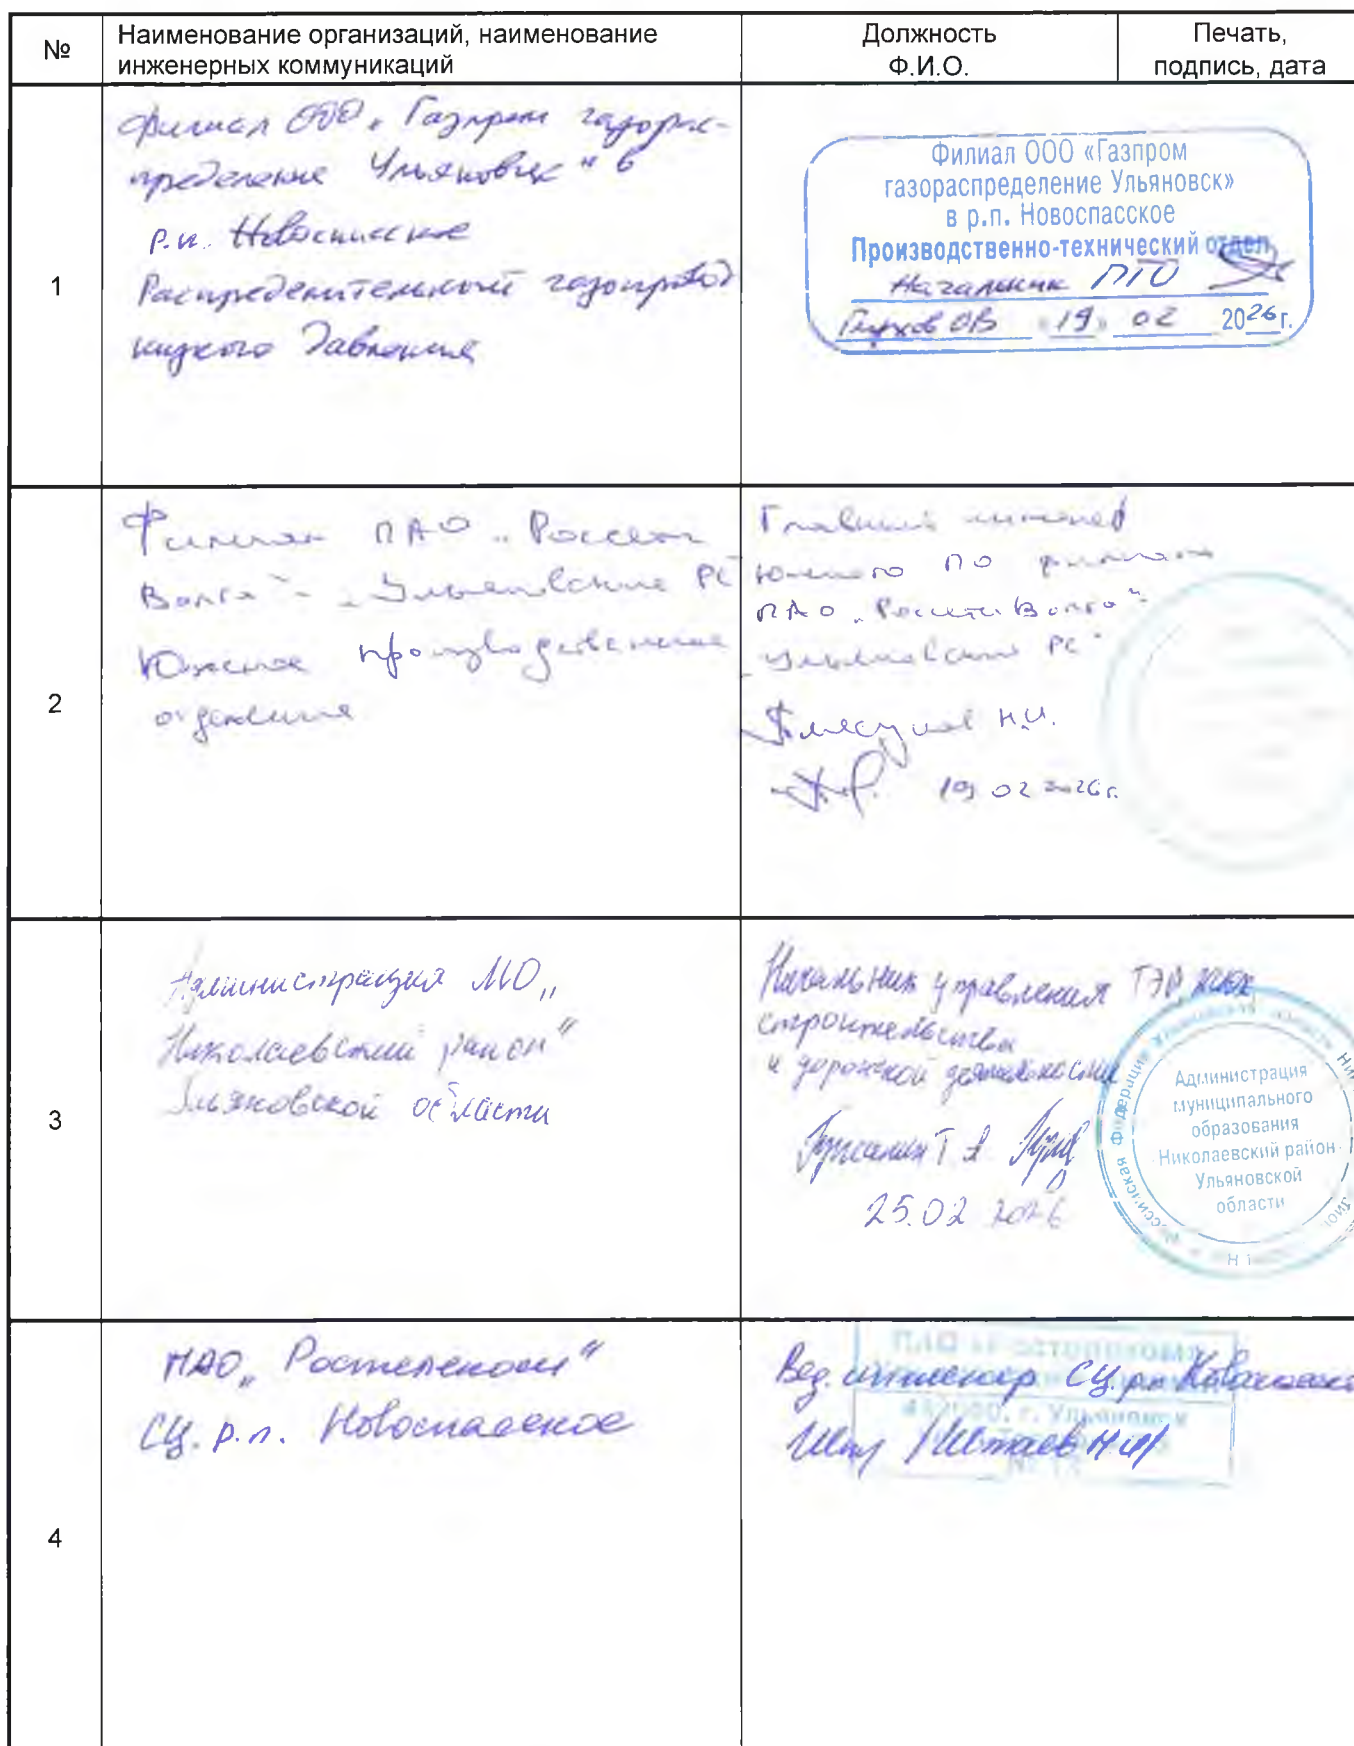 №
Наименование организаций, наименование
инженерных коммуникаций
Должность
Ф.И.О.
Печать,
подпись, дата
1
филиал ООО „Газпром газорас-
пределение Ульяновск" в
р.п. Новоспасское
Распределительный газопровод
низкого давления
Филиал ООО «Газпром
газораспределение Ульяновск»
в р.п. Новоспасское
Производственно-технический отдел
Начальник ПТО
ОВ «19» 02 2026г.
2
Филиал ПАО „Россети
Волга" - „Ульяновские РС"
Южное производственное
отделение
Главный инженер
Южного ПО филиала
ПАО „Россети Волга" -
„Ульяновские РС"
Н.И.
19 02 2026г.
3
Администрация МО „
Николаевский район"
Ульяновской области
Начальник управления ТЭР, ЖКХ
строительства
и дорожной деятельности
Т А
25.02 2026
Администрация
муниципального
образования
Николаевский район
Ульяновской
области
4
ПАО „Ростелеком"
СЦ. р.п. Новоспасское
Вед. инженер СЦ. рп
г. Ульяновск